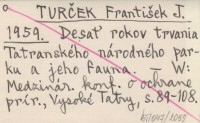 TURČEK František J.
1959. Desať rokov trvania
Tatranského národného par-
ku a jeho fauna. – W:
Medzinár. konf. o ochrane
prír., Vysoké Tatry, s. 89-108.